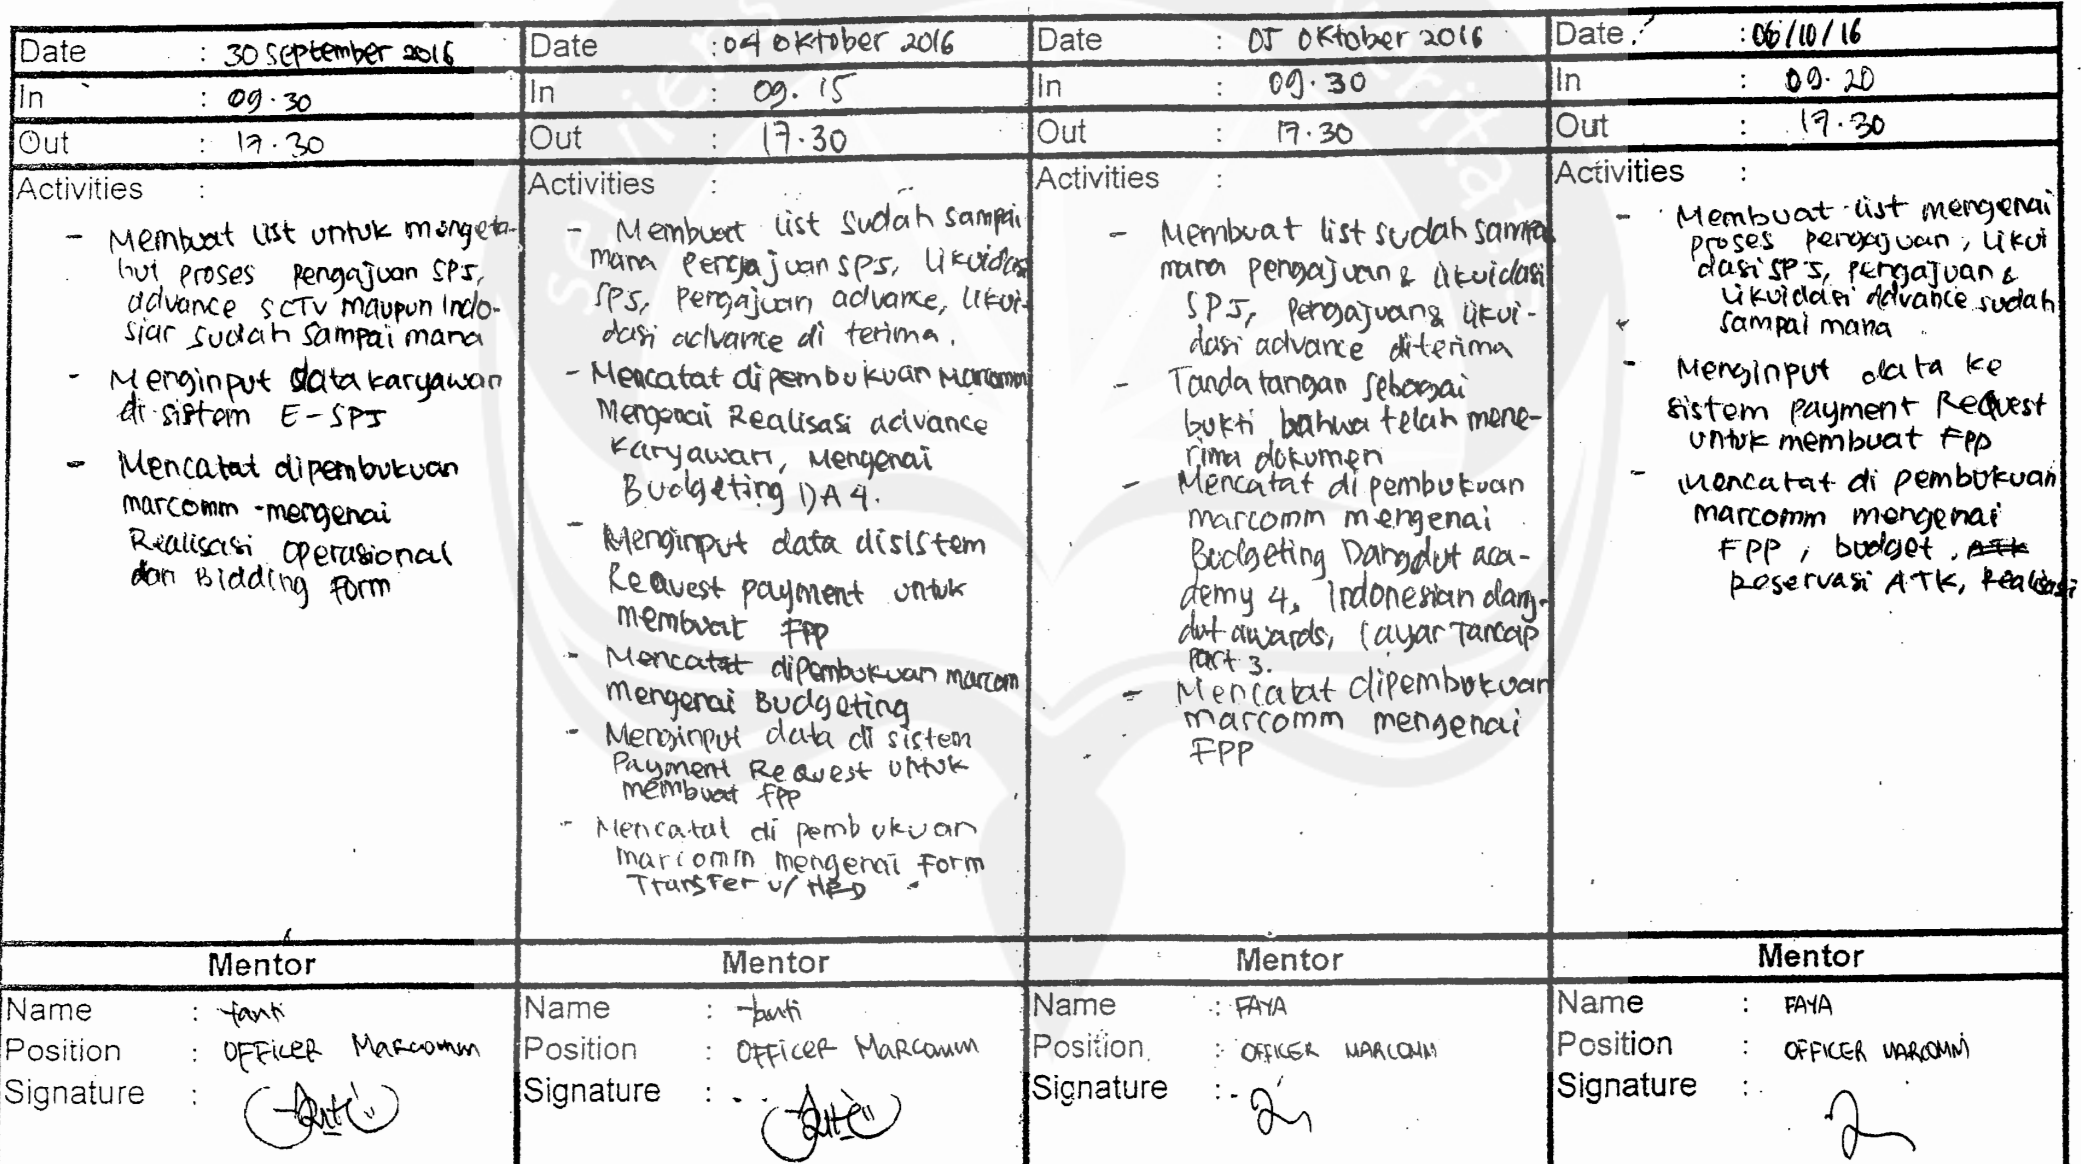 serviens
veritatis
Date : 30 September 2016
In : 09.30
Out : 17.30
Activities :
- Membuat list untuk mengeta-
hui proses pengajuan SPJ,
advance SCTV maupun Indo-
siar sudah sampai mana
- Menginput data karyawan
di sistem E-SPJ
- Mencatat dipembukuan
marcomm -mengenai
Realisasi Operasional
dan Bidding Form
Mentor
Name :
Position : OFFICER MARCOMM
Signature :
Date : 04 Oktober 2016
In : 09.15
Out : 17.30
Activities :
- Membuat list sudah sampai
mana pengajuan SPJ, likuidasi
SPJ, Pengajuan advance, likui-
dasi advance di terima.
- Mencatat dipembukuan Marcomm
Mengenai Realisasi advance
Karyawan, Mengenai
Budgeting DA 4.
- Menginput data disistem
Request payment untuk
membuat FPP
- Mencatat dipembukuan marcom
mengenai Budgeting
- Menginput data di sistem
Payment Request untuk
membuat FPP
- Mencatat di pembukuan
marcomm mengenai Form
Transfer u/
Mentor
Name :
Position : OFFICER MARCOMM
Signature :
Date : 05 Oktober 2016
In : 09.30
Out : 17.30
Activities :
- Membuat list sudah sampai
mana pengajuan & likuidasi
SPJ, Pengajuan & likui-
dasi advance diterima
- Tanda tangan sebagai
bukti bahwa telah mene-
rima dokumen
- Mencatat di pembukuan
marcomm mengenai
Budgeting Dangdut aca-
demy 4, Indonesian dang-
dut awards, layar Tancap
Part 3.
- Mencatat dipembukuan
marcomm mengenai
FPP
Mentor
Name : FAYA
Position : OFFICER MARCOMM
Signature :
Date : 06/10/16
In : 09.20
Out : 17.30
Activities :
- Membuat list mengenai
proses pengajuan, likui
dasi SPJ, pengajuan &
likuidasi advance sudah
sampai mana
- Menginput data ke
sistem payment Request
untuk membuat FPP
- Mencatat di pembukuan
marcomm mengenai
FPP, budget, ATK
Reservasi ATK, Realisasi
Mentor
Name : FAYA
Position : OFFICER MARCOMM
Signature :